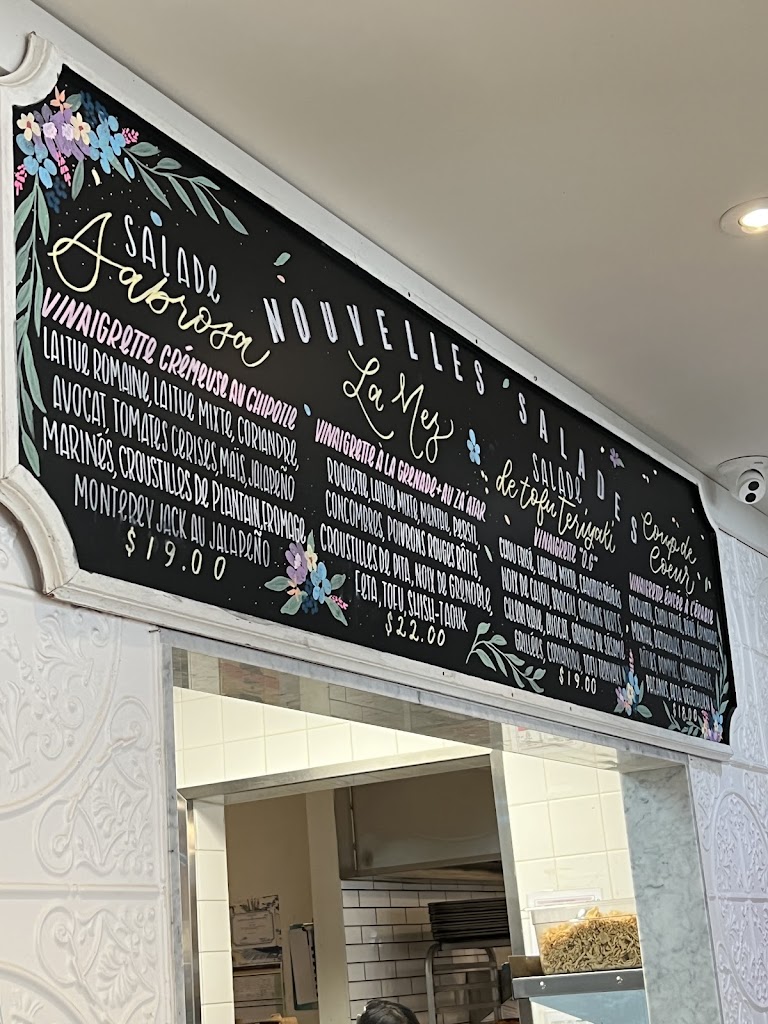 NOUVELLES SALADES
SALADE
Sabrosa
VINAIGRETTE CRÉMEUSE AU CHIPOTLE
LAITUE ROMAINE, LAITUE MIXTE, CORIANDRE,
AVOCAT, TOMATES CERISES, MAÏS, JALAPEÑO
MARINÉS, CROUSTILLES DE PLANTAIN, FROMAGE
MONTEREY JACK AU JALAPEÑO
$19.00
La Mez
VINAIGRETTE À LA GRENADE + AU ZA'ATAR
ROQUETTE, LAITUE MIXTE, MENTHE, PERSIL,
CONCOMBRES, POIVRONS ROUGES RÔTIS,
CROUSTILLES DE PITA, NOIX DE GRENOBLE,
FETA, TOFU SHISH-TAOUK
$22.00
SALADE
de tofu Teriyaki
VINAIGRETTE "O.G"
CHOU FRISÉ, LAITUE MIXTE,
NOIX DE CAJOU,
AVOCAT, GRAINES DE SÉSAME
GRILLÉES, CORIANDRE, TOFU TERIYAKI
$19.00
Coup de
Coeur
VINAIGRETTE
ROQUETTE, CHOU FRISÉ,
$18.00